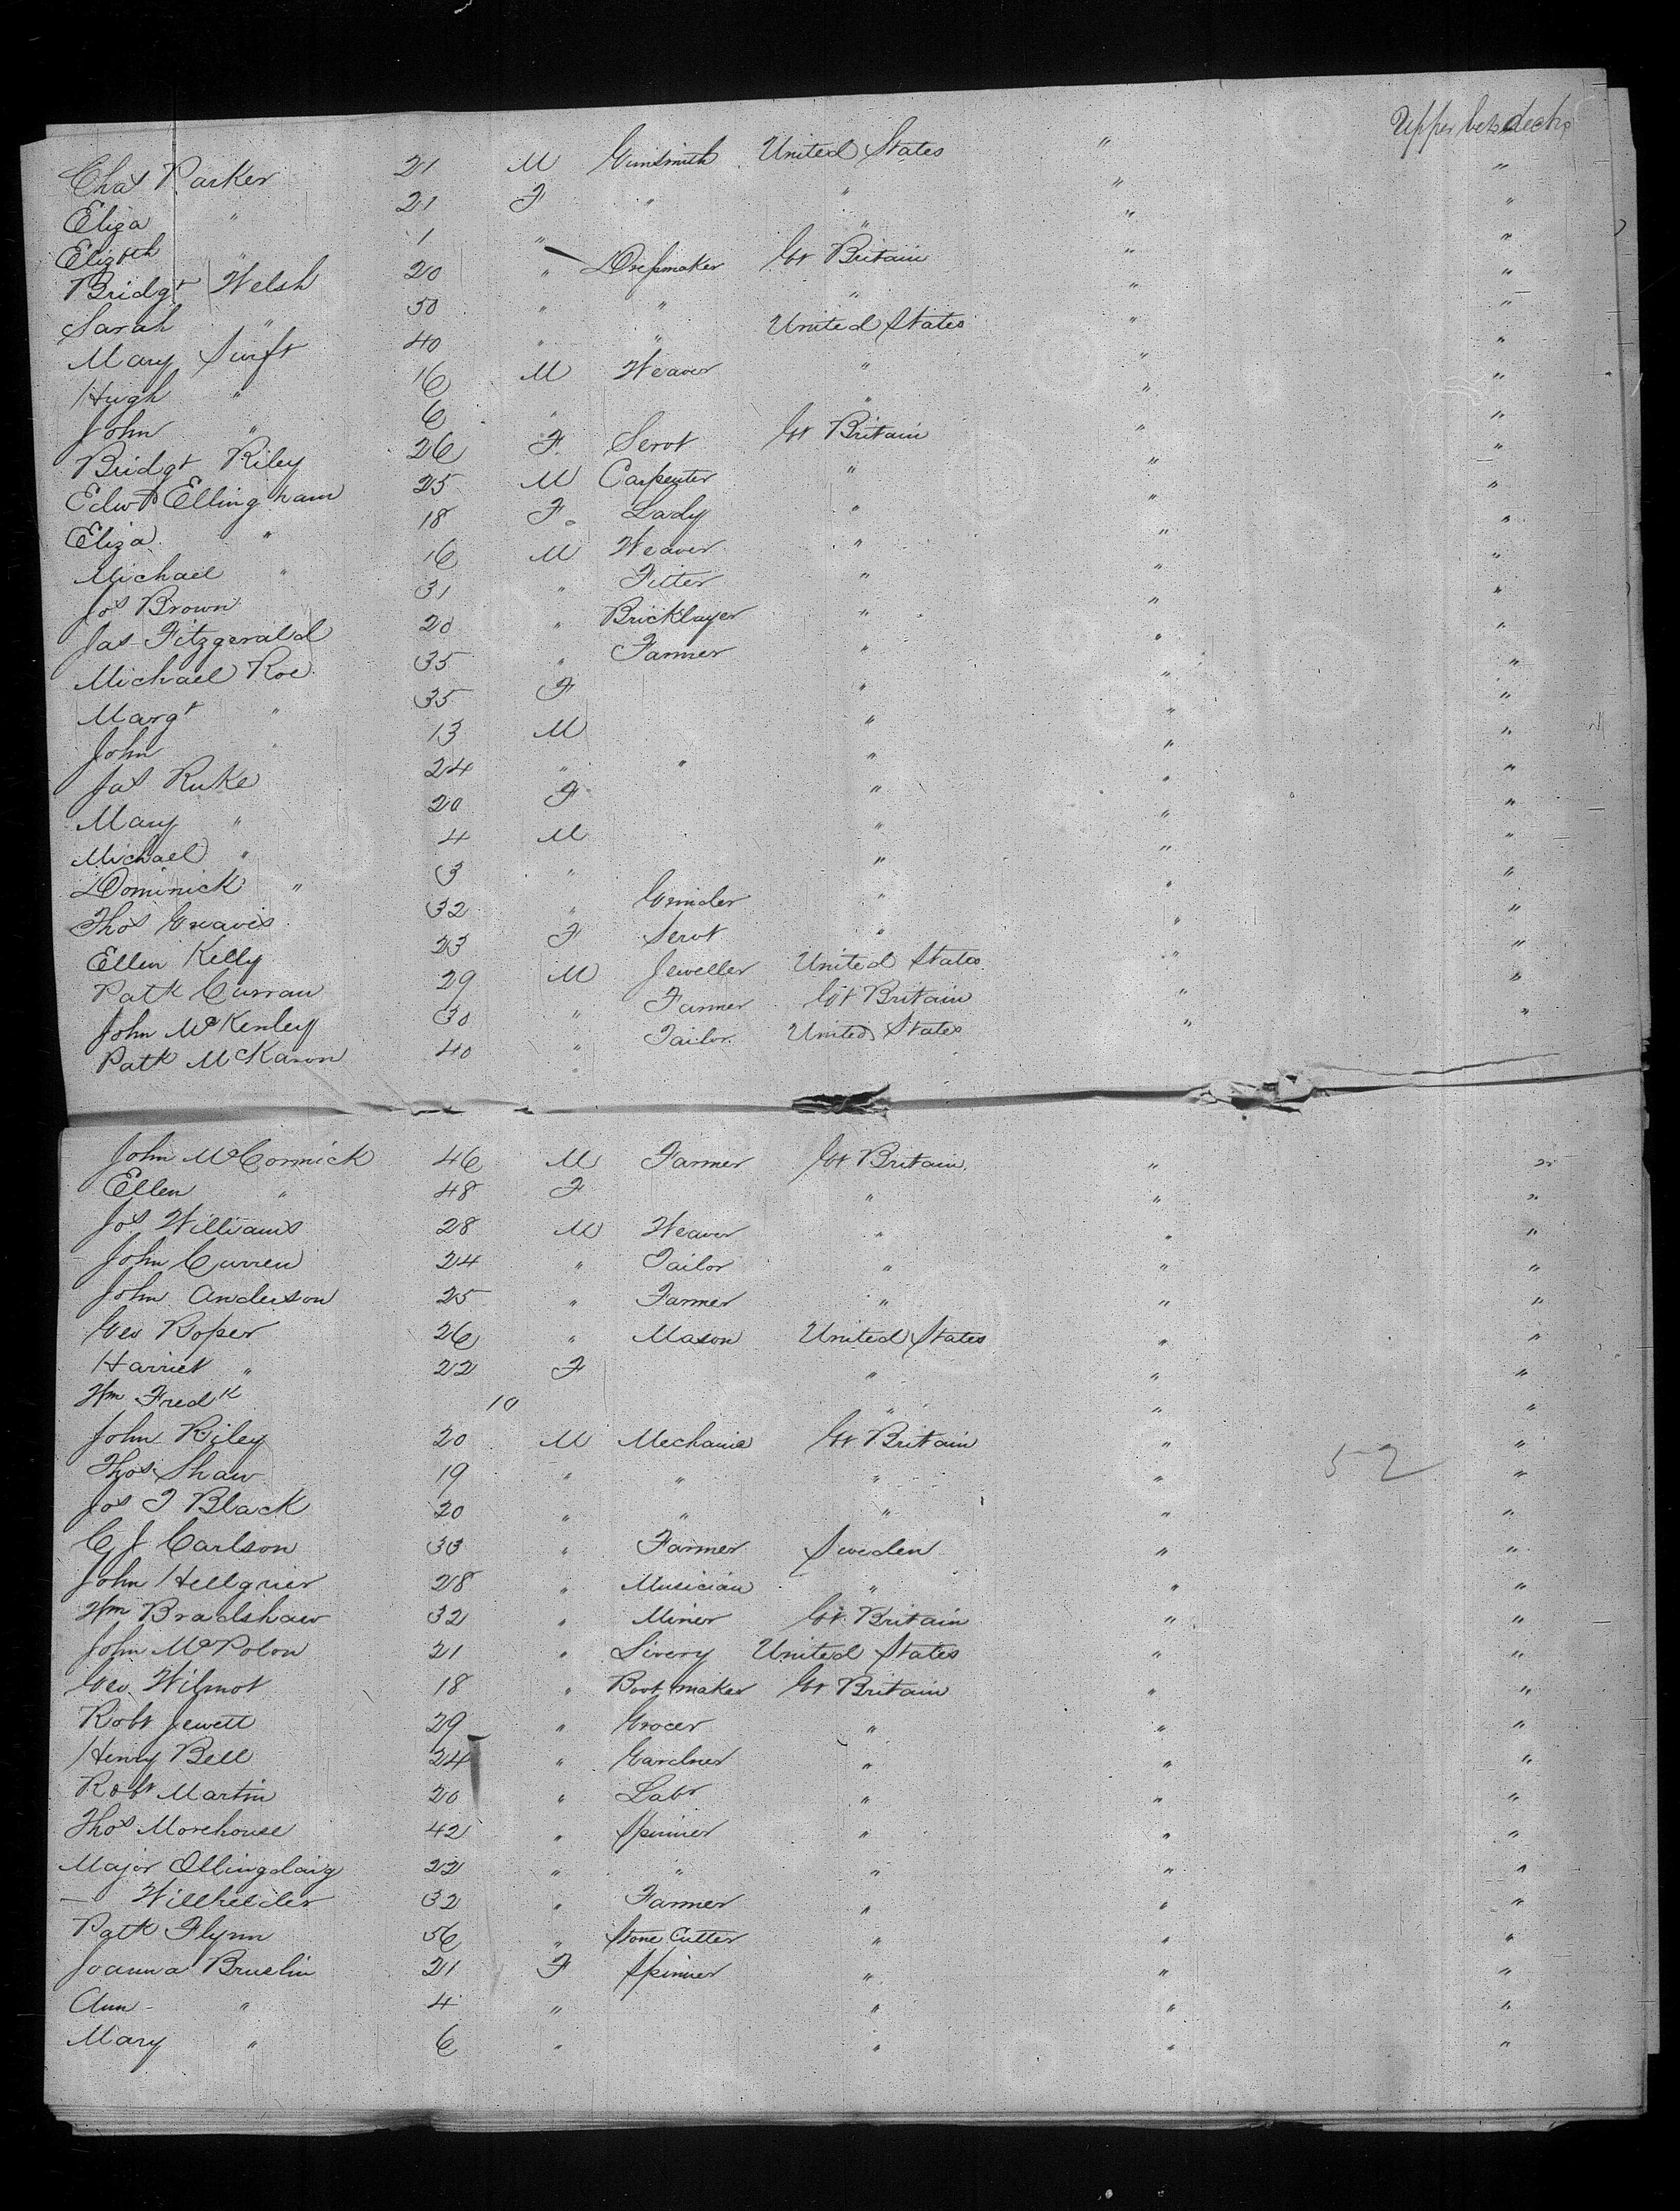 Upper betw decks
Chas Parker 21 M Gunsmith United States " "
Eliza " 21 F " " " "
Elizbth " 1 " " " "
Bridgt Welsh 20 " Dressmaker Gt Britain " "
Sarah " 50 " " " " "
Mary Swift 40 " " United States " "
Hugh " 16 M Weaver " " "
John " 6 " " " "
Bridgt Riley 26 F Servt Gt Britain " "
Edwd Ellingham 25 M Carpenter " " "
Eliza " 18 F Lady " " "
Michael " 16 M Weaver " " "
Jos Brown 31 " Fitter " " "
Jas Fitzgerald 20 " Bricklayer " " "
Michael Roe 35 " Farmer " " "
Margt " 35 F " " "
John " 13 M " " "
Jas Ruke 24 " " " " "
Mary " 20 F " " "
Michael " 4 M " " "
Dominick " 3 " " " "
Thos Greavis 32 " Grinder " " "
Ellen Kelly 23 F Servt " " "
Patk Curran 29 M Jeweller United States " "
John McKenley 30 " Farmer Gt Britain " "
Patk McKason 40 " Tailor United States " "
John McCormick 46 M Farmer Gt Britain " "
Ellen " 48 F " " "
Jos Williams 28 M Weaver " " "
John Curren 24 " Tailor " " "
John Anderson 25 " Farmer " " "
Geo Roper 26 " Mason United States " "
Harriet " 22 F " " "
Wm Fredk 10 " " "
John Riley 20 M Mechanic Gt Britain " "
Thos Shaw 19 " " " " 52 "
Jos T Black 20 " " " " "
C J Carlson 33 " Farmer Sweden " "
John Hellgrier 28 " Musician " " "
Wm Bradshaw 32 " Miner Gt Britain " "
John McPolon 21 " Livery United States " "
Geo Wilmot 18 " Boot maker Gt Britain " "
Robt Jewett 29 " Grocer " " "
Henry Bell 24 " Gardner " " "
Robt Martin 20 " Labr " " "
Thos Morehouse 42 " Spinner " " "
Major Ollingdaig 22 " " " " "
— Willhelder 32 " Farmer " " "
Patk Flynn 56 " Stone Cutter " " "
Joanna Bruslin 21 F Spinner " " "
Ann " 4 " " " "
Mary " 6 " " " "